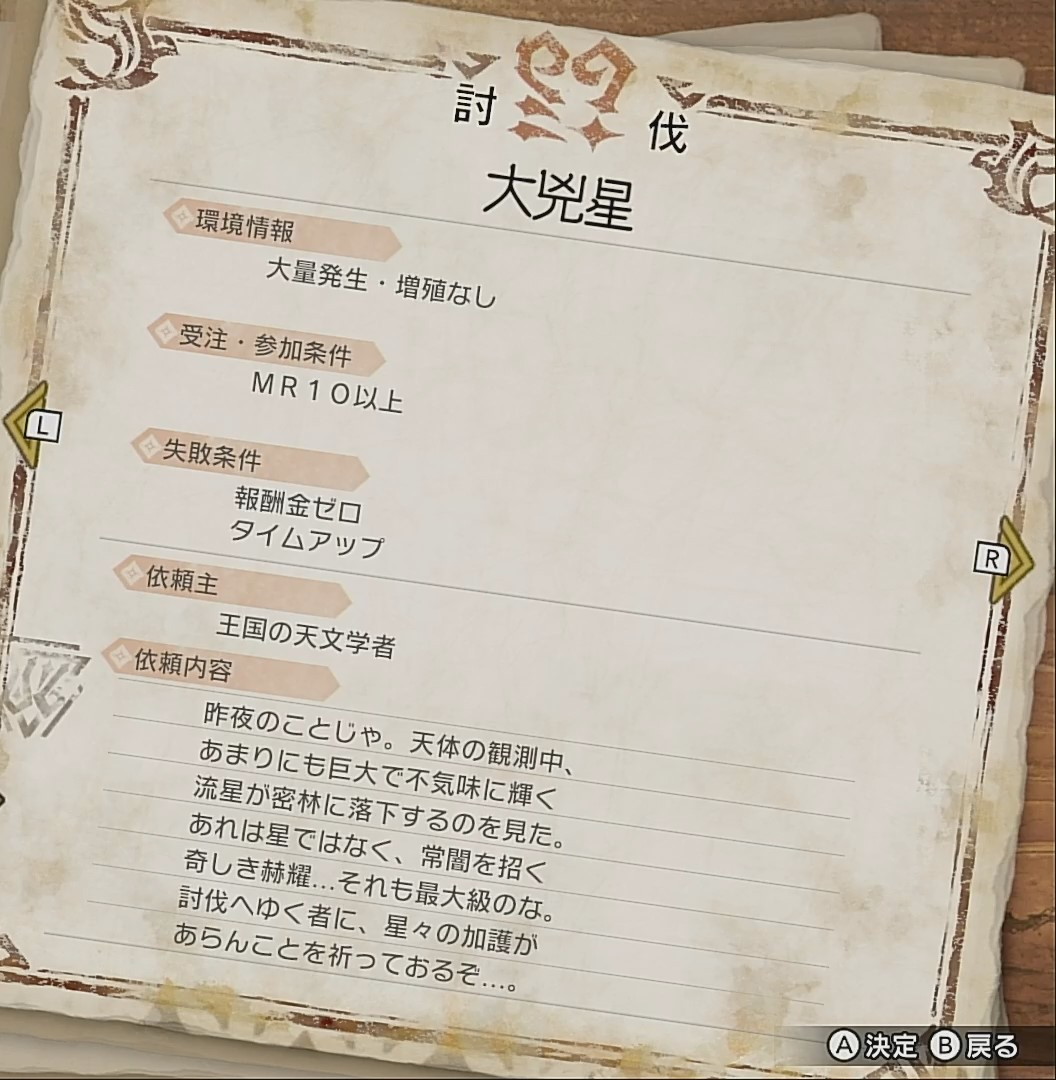 討伐
大兇星
環境情報
大量発生・増殖なし
受注・参加条件
MR10以上
失敗条件
報酬金ゼロ
タイムアップ
依頼主
王国の天文学者
依頼内容
昨夜のことじゃ。天体の観測中、
あまりにも巨大で不気味に輝く
流星が密林に落下するのを見た。
あれは星ではなく、常闇を招く
奇しき赫耀…それも最大級のな。
討伐へゆく者に、星々の加護が
あらんことを祈っておるぞ…。
L
R
A決定 B戻る